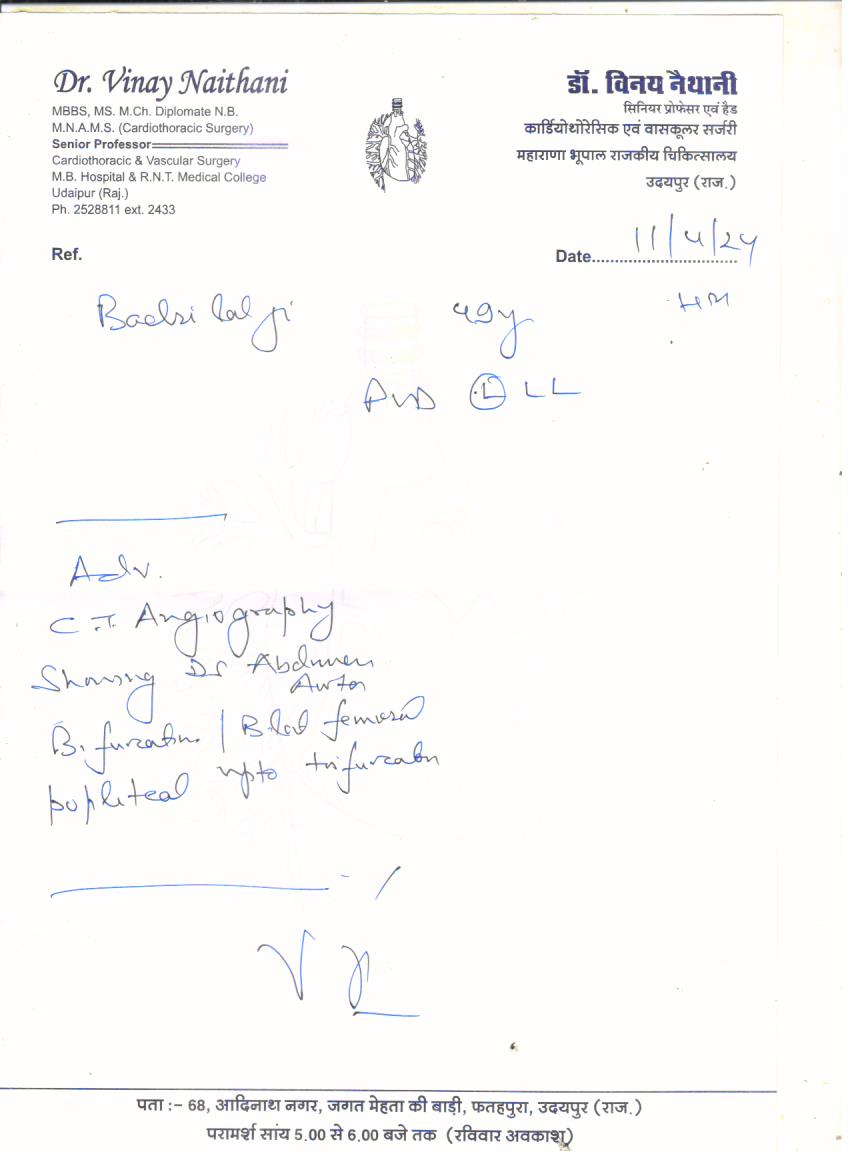 Dr. Vinay Naithani
MBBS, MS. M.Ch. Diplomate N.B.
M.N.A.M.S. (Cardiothoracic Surgery)
Senior Professor
Cardiothoracic & Vascular Surgery
M.B. Hospital & R.N.T. Medical College
Udaipur (Raj.)
Ph. 2528811 ext. 2433
डॉ. विनय नैथानी
सिनियर प्रोफेसर एवं हैड
कार्डियोथोरेसिक एवं वासकूलर सर्जरी
महाराणा भूपाल राजकीय चिकित्सालय
उदयपुर (राज.)
Ref.
Date 11/4/24
Badri lal ji 49y
PVD (L) LL
Adv.
C.T. Angiography
Showing
Bifurcatn / femoral
popliteal upto trifurcatn
पता :- 68, आदिनाथ नगर, जगत मेहता की बाड़ी, फतहपुरा, उदयपुर (राज.)
परामर्श सांय 5.00 से 6.00 बजे तक (रविवार अवकाश)